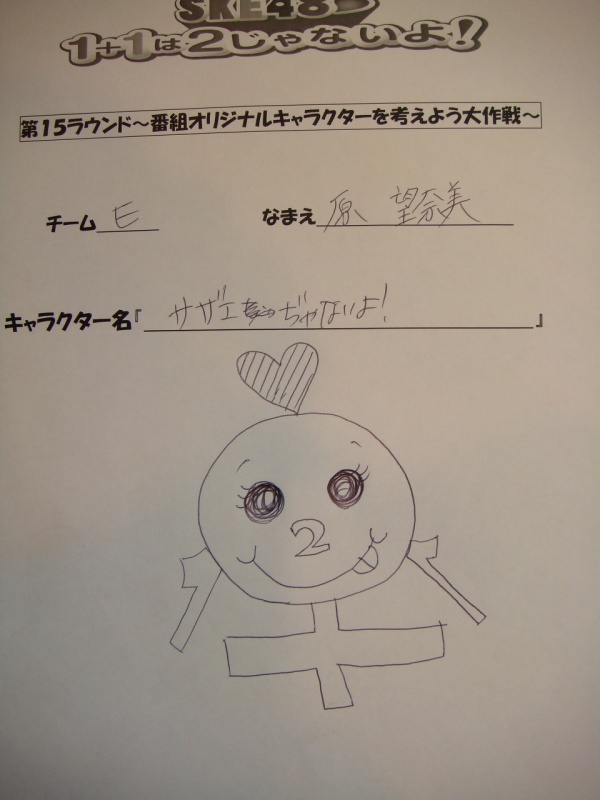 SKE48
1+1は2じゃないよ!
第15ラウンド～番組オリジナルキャラクターを考えよう大作戦～
チーム E なまえ 原 望奈美
キャラクター名『 サザエ じゃないよ! 』
2